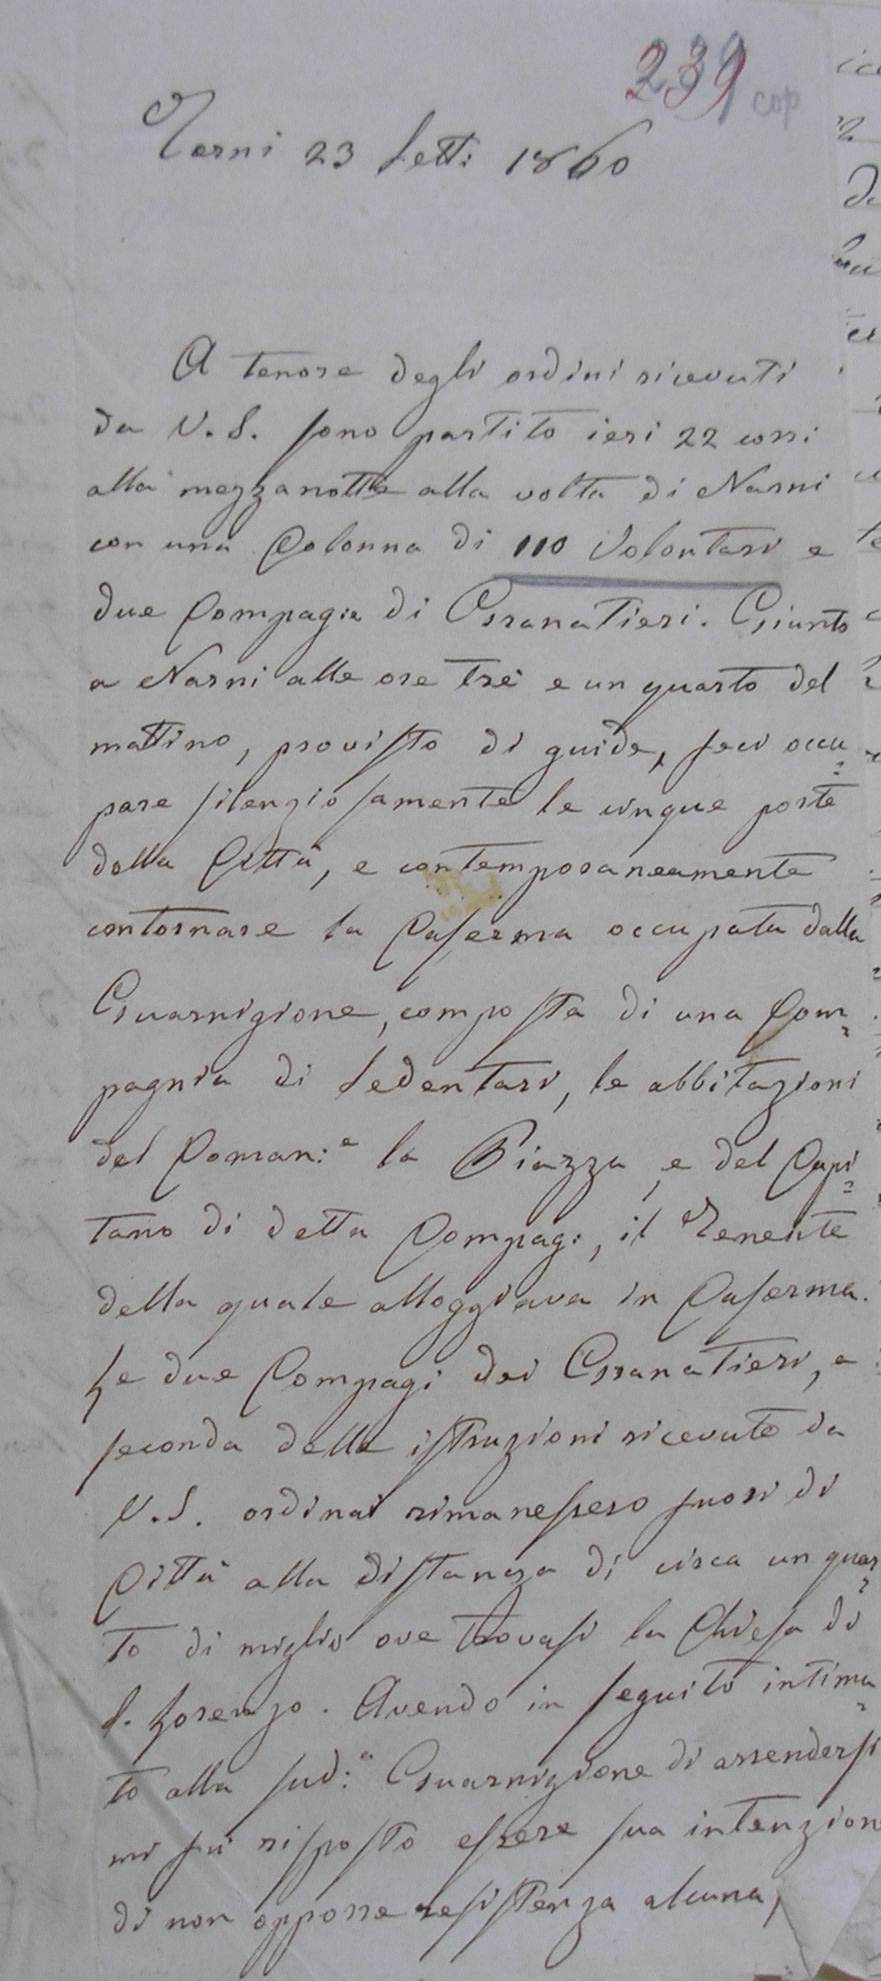 239 cop
Terni 23 Sett: 1860
A tenore degli ordini ricevuti
da V. S. sono partito ieri 22 corri
alla mezzanotte alla volta di Narni
con una Colonna di 110 Volontari e
due Compag.e di Granatieri. Giunto
a Narni alle ore tre e un quarto del
mattino, provisto di guide, feci occu
pare silenziosamente le cinque porte
della Città, e contemporaneamente
contornare la Caserma occupata dalla
Guarnigione, composta di una Com
pagnia di Sedentari, le abbitazioni
del Coman:e la Piazza, e del Capi
tano di detta Compag:, il Tenente
della quale alloggiava in Caserma.
Le due Compagi dei Granatieri, a
seconda delle istruzioni ricevute da
V. S. ordinai rimanessero fuori di
Città alla distanza di circa un quar
to di miglio ove trovasi la Chiesa di
S. Lorenzo. Avendo in seguito intima
to alla sud:a Guarnigione di arrendersi
mi fu risposto essere sua intenzion
di non opporre resistenza alcuna,